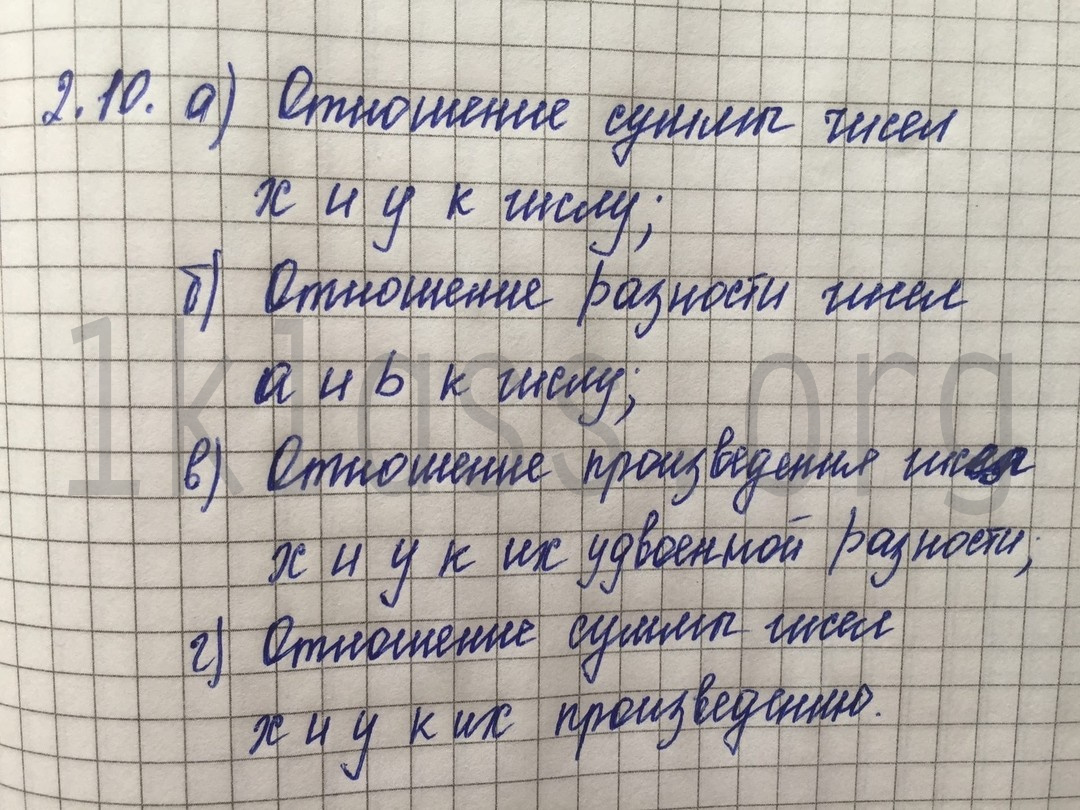 2.10. а) Отношение суммы чисел
х и у к числу;
б) Отношение разности чисел
a и b к числу;
в) Отношение произведения чисел
х и у к их удвоенной разности;
г) Отношение суммы чисел
х и у к их произведению.
1klass.org